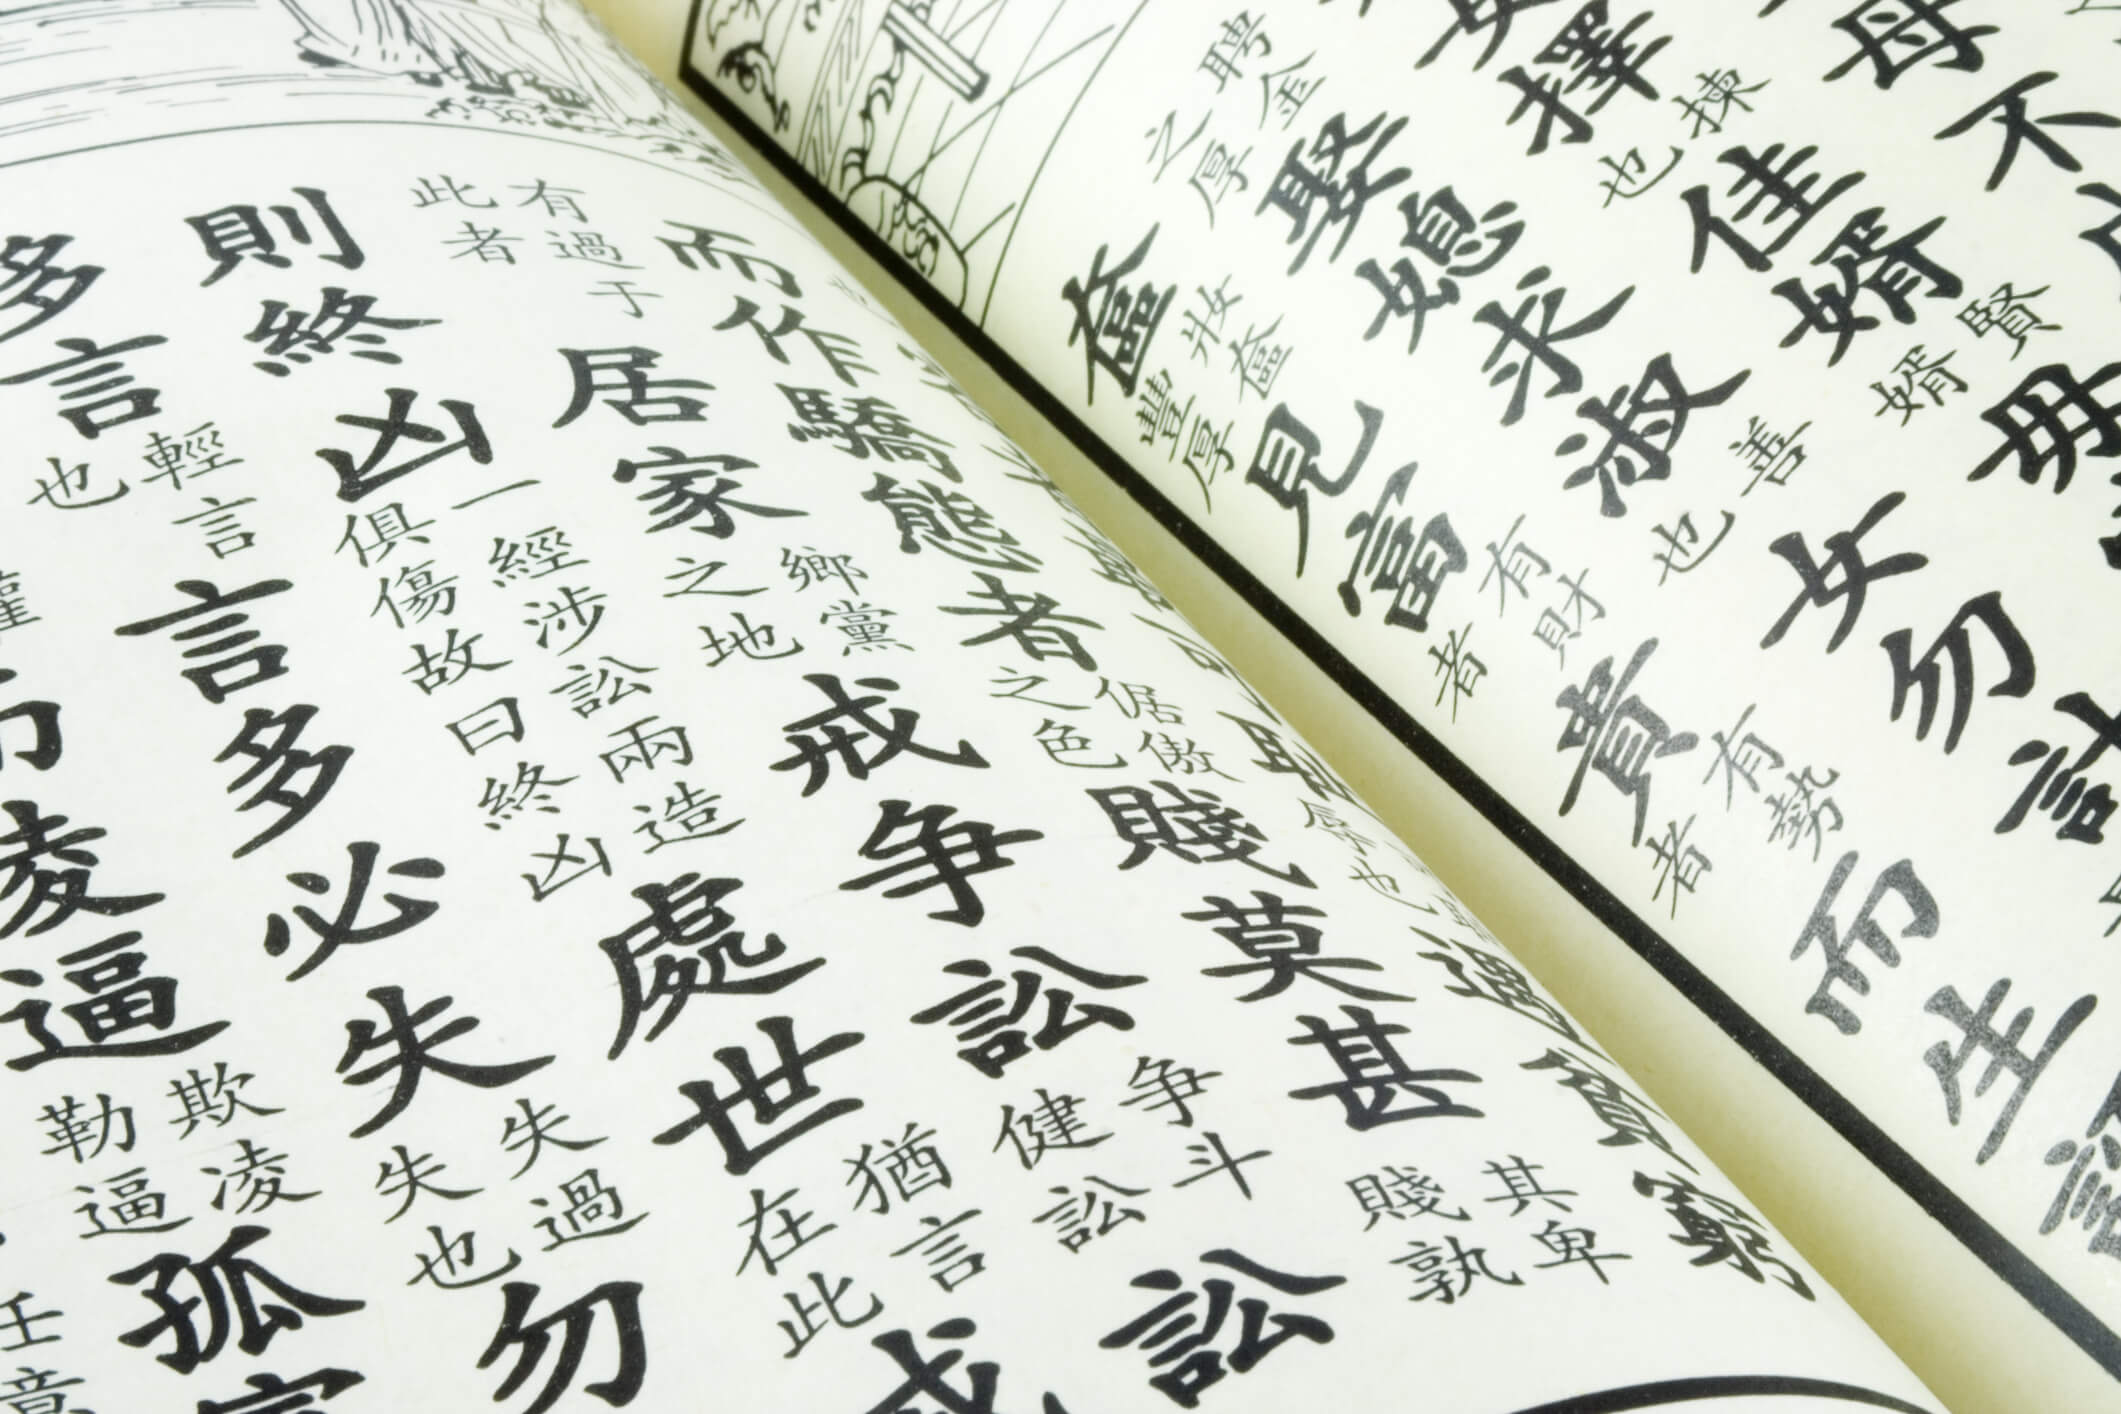 母不
擇揀也佳婿賢婿毋
娶媳求淑善也女勿計
聘金之厚奩妝奩豐厚見富有財者貴有勢者而生諂
窮
而作驕態者倨傲之色賤莫甚其卑賤孰
有過于此者居家鄉黨之地戒争訟争斗健訟訟
則終凶一經涉訟兩造俱傷故曰終凶處世猶言在此戒
多言輕言也言多必失失過失也勿
凌逼欺凌勒逼孤